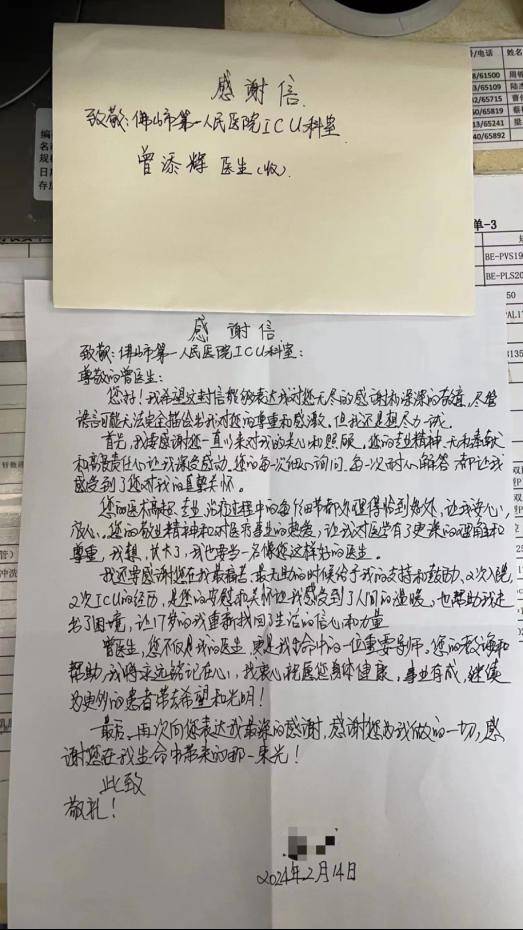 感谢信
致敬：佛山市第一人民医院ICU科室
曾添辉医生（收）
/电话 姓名
/61500
/65109
/65715
/65819
/65241
40/65892
单-3
BE-PVS19
BE-PLS20
50
感谢信
致敬：佛山市第一人民医院ICU科室：
尊敬的曾医生：
您好！我希望这封信能够表达我对您无尽的感谢和深深的敬意，尽管
语言可能无法完全描绘出我对您的尊重和感激，但我还是想尽力一试。
首先，我要感谢您一直以来对我的关心和照顾。您的专业精神、无私奉献
和高度责任心让我深受感动。您的每一次细心询问，每一次耐心解答都让我
感受到了您对我的真挚关怀。
您的医术高超、专业，治疗过程中的每个细节都处理得恰到好处，让我安心，
放心。您的敬业精神和对医疗事业的热爱，让我对医学有了更深的理解和
尊重，我想，长大了，我也要当一名像您这样好的医生。
我还要感谢您在我最痛苦、最无助的时候给予我的支持和鼓励、2次入院，
2次ICU的经历，是您的安慰和关怀让我感受到了人间的温暖，也帮助我走
出了困境，让17岁的我重新找回了生活的信心和力量
曾医生，您不仅是我的医生，更是我生命中的一位重要导师。您的教诲和
帮助，我将永远铭记在心，我衷心祝愿您身体健康，事业有成，继续
为更多的患者带去希望和光明！
最后，再次向您表达我最深的感谢，感谢您为我做的一切，感
谢您在我生命中带来的那一束光！
此致
敬礼！
2024年2月14日